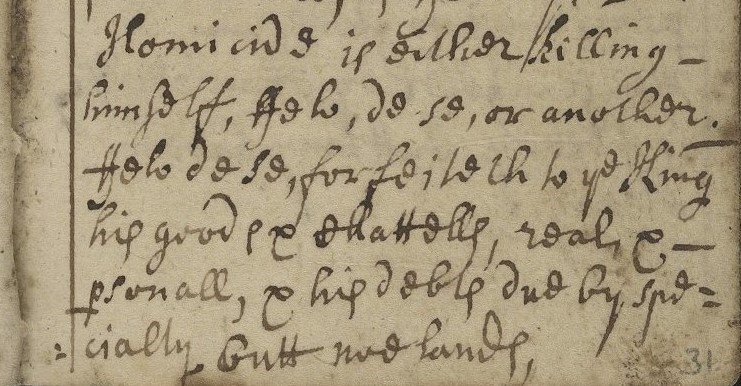 Homicide is either killing -
himself, ffelo, de se, or another.
ffelo de se, forfeiteth to ye King
his goods & chattells, real, & -
psonall, & his debts due by spe=
=cialty butt noe lands,
31